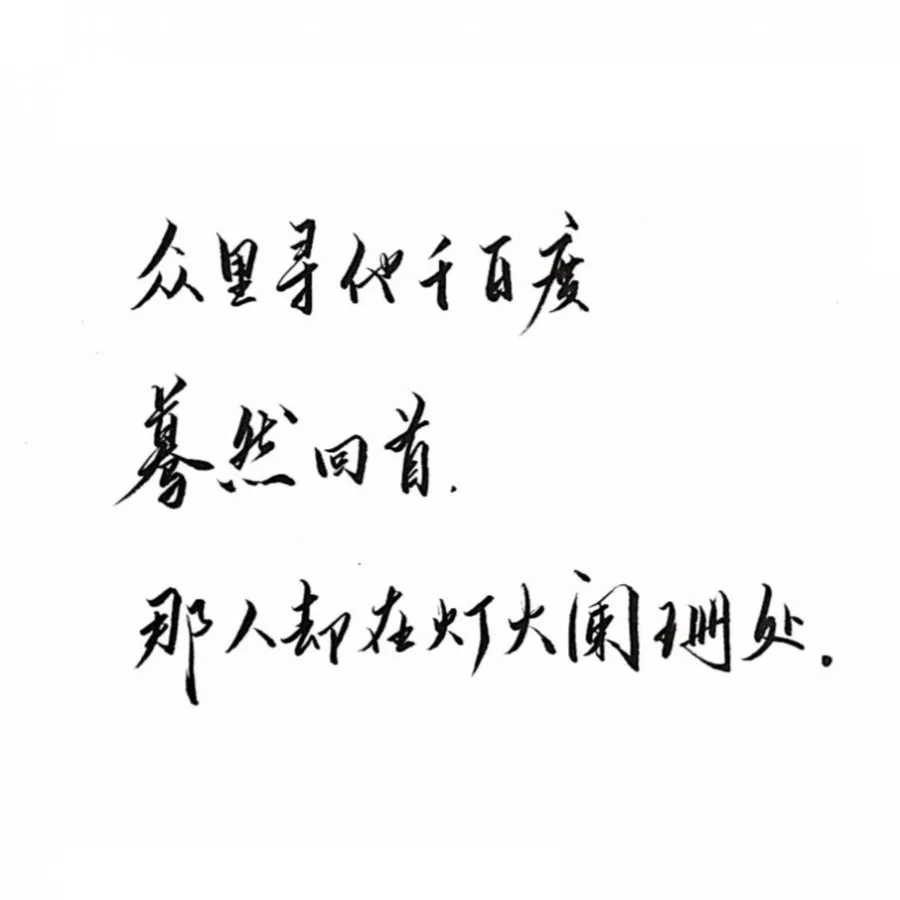 众里寻他千百度
蓦然回首.
那人却在灯火阑珊处.